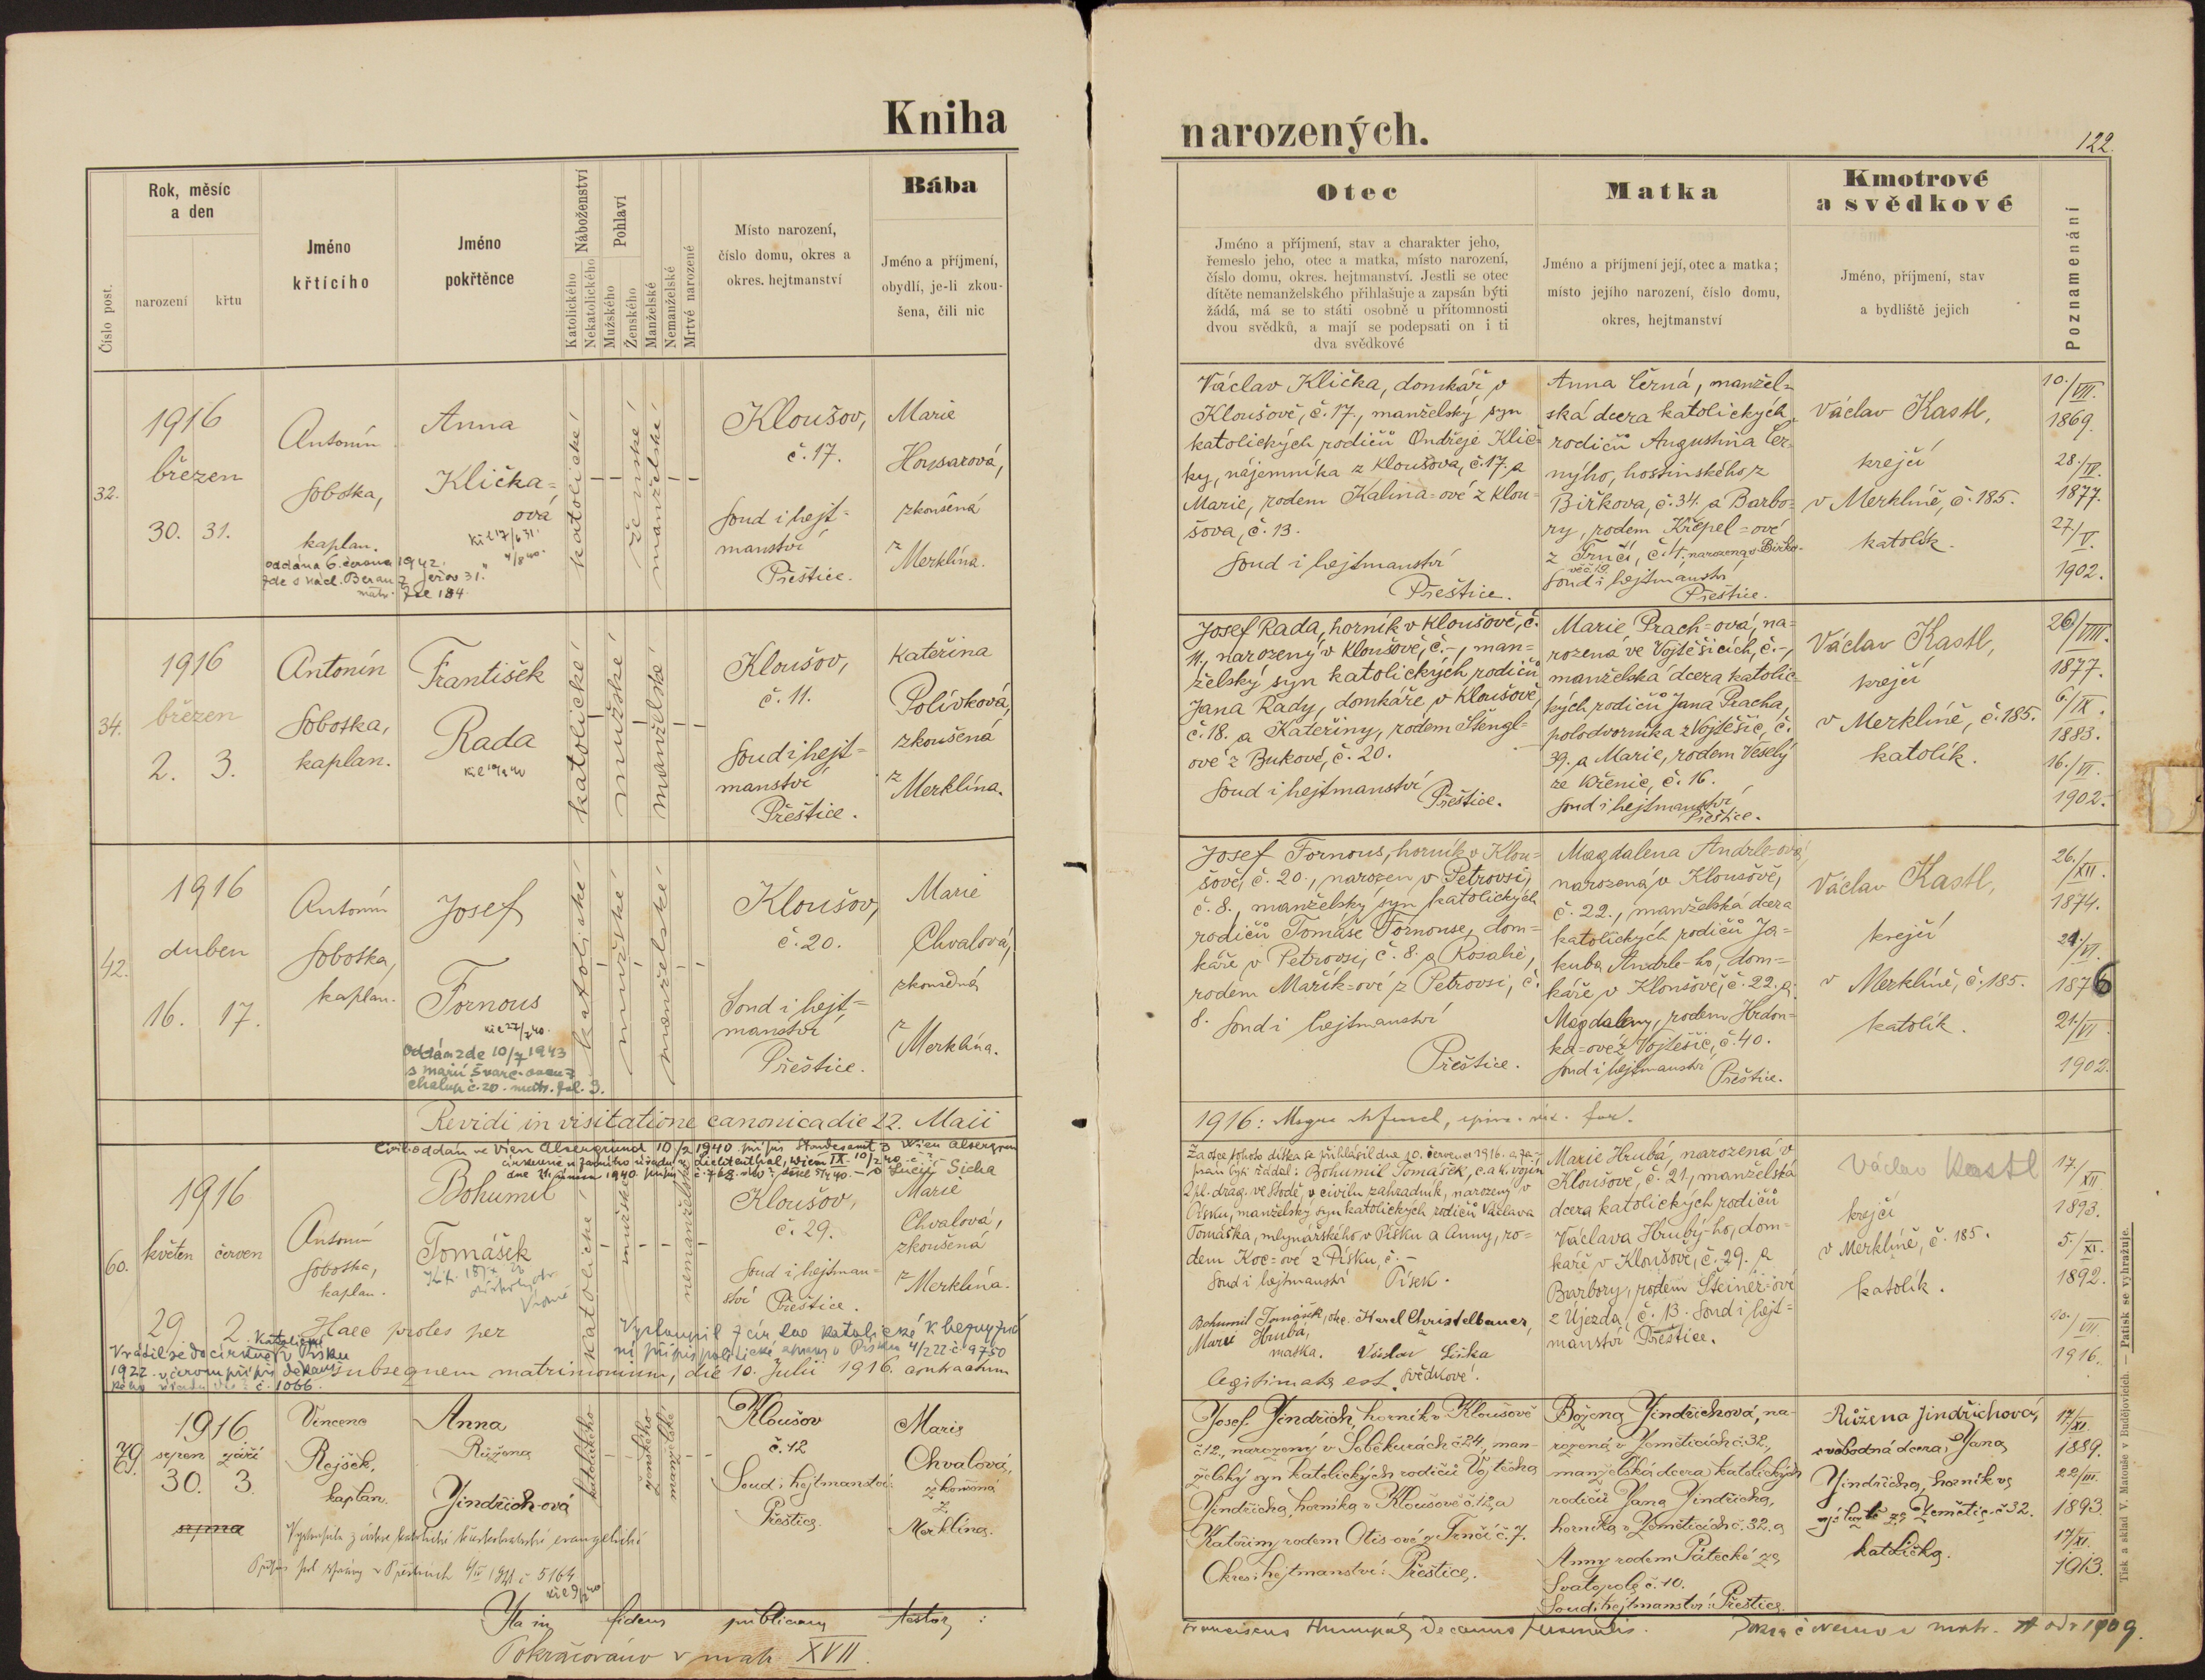 Kniha
Číslo post.
Rok, měsíc
a den
narození
křtu
Jméno
křtícího
Jméno
pokřtěnce
Náboženství
Katolického
Nekatolického
Pohlaví
Mužského
Ženského
Manželské
Nemanželské
Mrtvé narozené
Místo narození,
číslo domu, okres a
okres. hejtmanství
Bába
Jméno a příjmení,
obydlí, je-li zkou-
šena, čili nic
32.
1916
březen
30. 31.
Antonín
Sobotka,
kaplan.
oddána 6. června 1942.
Anna
Klička=
ová
katolické
ženské
manželské
Kloušov,
č. 17.
Soud i hejt=
manství
Přeštice.
Marie
zkoušená
z
Merklína.
34.
1916
březen
2. 3.
Antonín
Sobotka,
kaplan.
František
Rada
katolické
mužské
manželské
Kloušov,
č. 11.
Soud i hejt=
manství
Přeštice.
Kateřina
Polívková,
zkoušená
z
Merklína.
42.
1916
duben
16. 17.
Antonín
Sobotka,
kaplan.
Josef
Fornous
oddán zde 10/7 1943
katolické
mužské
manželské
Kloušov,
č. 20.
Soud i hejt=
manství
Přeštice.
Marie
Chvalová,
zkoušená
z
Merklína.
Revidi in visitatione canonica die 22. Maii
60.
1916
květen červen
29. 2.
Antonín
Sobotka,
kaplan.
Bohumil
Tomášek
katolické
mužské
nemanželské
Kloušov,
č. 29.
Soud i hejtman=
ství Přeštice.
Marie
Chvalová,
zkoušená
z
Merklína.
Haec proles per
subsequem matrimonium, die 10. Julii 1916. contractum
79.
1916
srpen září
30. 3.
srpna
Vincenc
Rejšek,
kaplan.
Anna
Růžena
Jindřich-ová
katolického
ženského
manželské
Kloušov
č. 12
Soud i hejtmanství:
Přeštice.
Marie
Chvalová,
zkoušená
z
Merklína.
Ita in fidem publicam testor:
Pokračováno v matr. XVII.
narozených.
122.
Otec
Jméno a příjmení, stav a charakter jeho,
řemeslo jeho, otec a matka, místo narození,
číslo domu, okres. hejtmanství. Jestli se otec
dítěte nemanželského přihlašuje a zapsán býti
žádá, má se to státi osobně u přítomnosti
dvou svědků, a mají se podepsati on i ti
dva svědkové
Matka
Jméno a příjmení její, otec a matka;
místo jejího narození, číslo domu,
okres, hejtmanství
Kmotrové
a svědkové
Jméno, příjmení, stav
a bydliště jejich
Poznamenání
Václav Klička, domkář v
Kloušově, č. 17., manželský syn
katolických rodičů Ondřeje Klič=
ky, nájemníka z Kloušova, č. 17. a
Marie, rodem Kalina=ové z Klou=
šova, č. 13.
Soud i hejtmanství
Přeštice.
Anna Černá, manžel=
ská dcera katolických
rodičů Augustina Čer=
ného, hostinského z
Birkova, č. 34. a Barbo=
ry, rodem Křepel=ové
z Trnčí, č. 4, narozená v Birko-
vě č. 19
Soud i hejtmanství
Přeštice.
Václav Kastl,
krejčí
v Merklíně, č. 185.
katolík.
10./VII.
1869.
28./IV.
1877.
27/V.
1902.
Josef Rada, horník v Kloušově, č.
11., narozený v Kloušově, č. -, man=
želský syn katolických rodičů
Jana Rady, domkáře v Kloušově,
č. 18. a Kateřiny, rodem Štengl=
ové z Bukové, č. 20.
Soud i hejtmanství
Přeštice.
Marie Prach=ová, na=
rozená ve Vojtěšicích, č. -,
manželská dcera katolic=
kých rodičů Jana Pracha,
polodvorníka z Vojtěšic, č.
39. a Marie, rodem Veselý
ze Křenic, č. 16.
Soud i hejtmanství
Přeštice.
Václav Kastl,
krejčí
v Merklíně, č. 185.
katolík.
26/VIII.
1877.
6/IX.
1883.
16./VI.
1902.
Josef Fornous, horník v Klou=
šově, č. 20., narozen v Petrovsi,
č. 8., manželský syn katolických
rodičů Tomáše Fornouse, dom=
káře v Petrovsi, č. 8. a Rosalie,
rodem Mařík=ové z Petrovsi, č.
8. Soud i hejtmanství
Přeštice.
Magdalena Andrle=ová,
narozená v Kloušově,
č. 22., manželská dcera
katolických rodičů Ja=
kuba Andrle-ho, dom=
káře v Kloušově, č. 22. a
Magdaleny, rodem Hrdon=
ka=ové z Vojtěšic, č. 40.
Soud i hejtmanství
Přeštice.
Václav Kastl,
krejčí
v Merklíně, č. 185.
katolík.
26./XII.
1874.
1876
21./VI.
1902.
1916:
Za otce tohoto dítka se přihlásil dne 10. července 1916. a za-
psán býti žádal: Bohumil Tomášek, c. a k. vojín
2 pl. drag. ve Stodě, v civilu zahradník, narozený v
Písku, manželský syn katolických rodičů Václava
Tomáška, mlynářského v Písku a Anny, ro=
dem Koc=ové z Písku, č. -
Soud i hejtmanství Písek.
Bohumil Tomášek, otec. Karel Christelbauer,
Marie Hrubá,
matka. Václav Liška
legitimata est. svědkové.
Marie Hrubá, narozená v
Kloušově, č. 21., manželská
dcera katolických rodičů
Václava Hrubý-ho, dom=
káře v Kloušově, č. 29. a
Barbory, rodem Steiner=ové
z Újezda, č. 13. Soud i hejt=
manství Přeštice.
Václav Kastl
krejčí
v Merklíně, č. 185.
katolík.
17./XII
1893.
5./XI.
1892.
1916.
Josef Jindřich, horník v Kloušově
č. 12., narozený v Soběkurách č. 24, man-
želský syn katolických rodičů Vojtěcha
Jindřicha, horníka v Kloušově č. 12, a
Kateřiny rodem Otis-ové z Trnčí č. 7.
Okres i hejtmanství: Přeštice.
Božena Jindřichová, na-
rozená v Zeměticích č. 32,
manželská dcera katolických
rodičů Jana Jindřicha,
horníka v Zeměticích č. 32. a
Anny rodem Pátecké ze
Svatopole č. 10.
Soud i hejtmanství: Přeštice.
Růžena Jindřichová,
svobodná dcera Jana
Jindřicha, horníka
ze Zemětic č. 32.
katolička.
17/XI.
1889.
22/III.
1893.
17/XI.
1913.
Tisk a sklad V. Matouše v Budějovicích. — Patisk se vyhražuje.